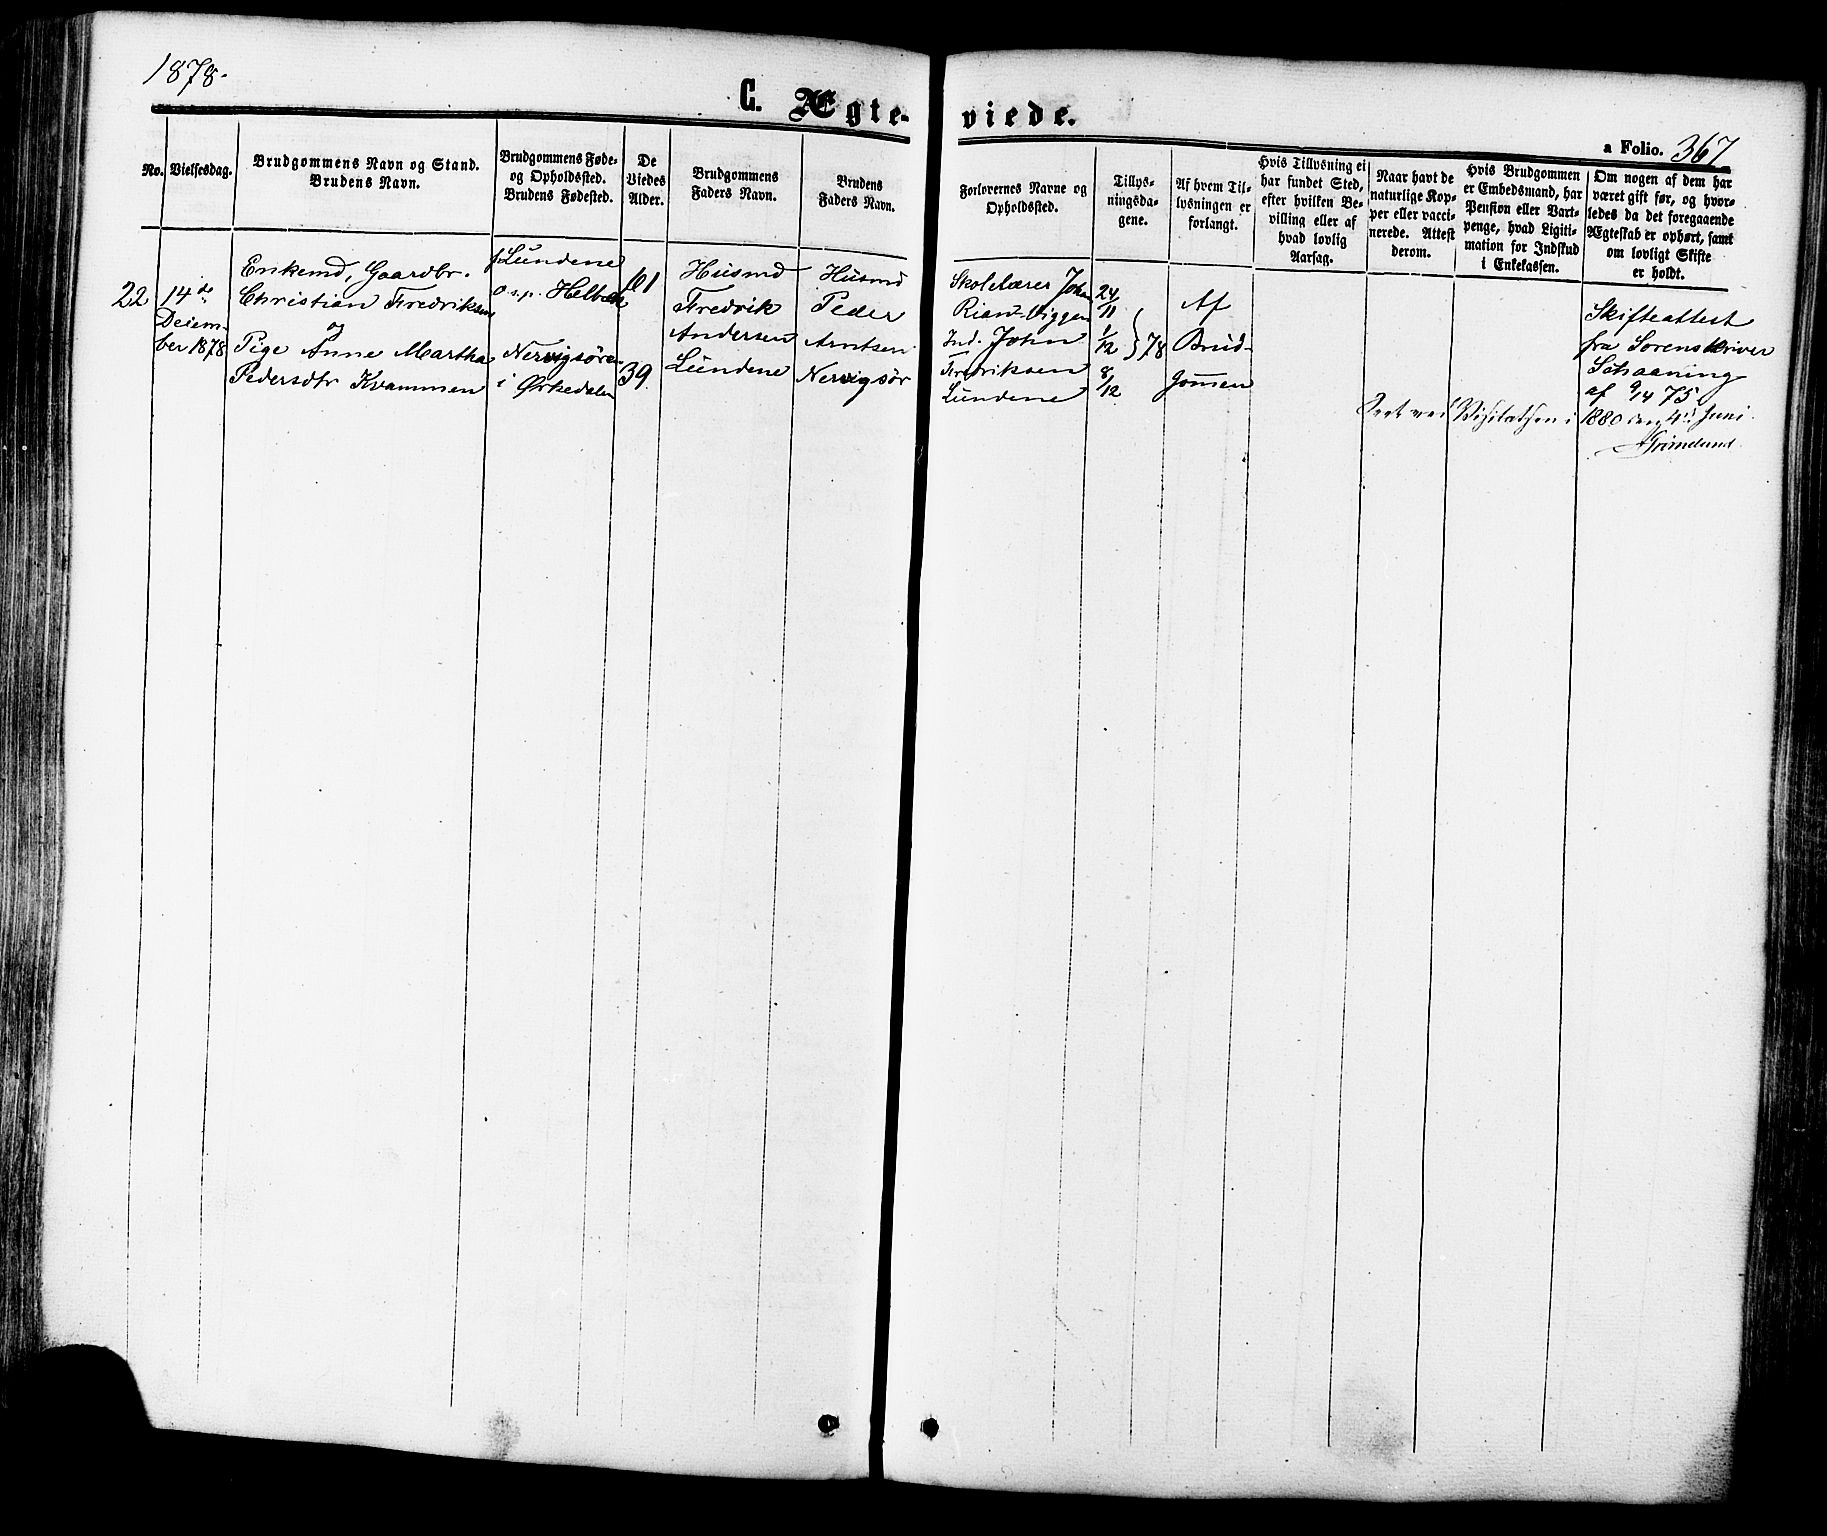 1878.
C. Ægte-
viede.
a Folio. 367
No.
Vielsesdag.
Brudgommens Navn og Stand.
Brudens Navn.
Brudgommens Føde-
og Opholdssted.
Brudens Fødested.
De
Viedes
Alder.
Brudgommens
Faders Navn.
Brudens
Faders Navn.
Forlovernes Navne og
Opholdssted.
Tillys-
ningsda-
gene.
Af hvem Til-
lysningen er
forlangt.
Hvis Tillysning ei
har fundet Sted,
efter hvilken Be-
villing eller af
hvad lovlig
Aarsag.
Naar havt de
naturlige Kop-
per eller vacci-
nerede. Attest
derom.
Hvis Brudgommen
er Embedsmand, har
Pension eller Vart-
penge, hvad Ligiti-
mation for Indskud
i Enkekassen.
Om nogen af dem har
været gift før, og hvor-
ledes da det foregaaende
Ægteskab er ophørt, samt
om lovligt Skifte
er holdt.
22
14de
Decem-
ber 1878
Enkemd, Gaardbr.
Christian Fredriksen
og
Pige Anne Martha
Pedersdtr Kvammen
f. Lundene
o. s. p. Helbæk
Nervigsøre
i Ørkedalen
61
39.
Husmd
Fredrik
Andersen
Lundene
Husmd
Peder
Arntsen
Nervigsør
Skolelærer John
Rian-Viggen
Ind. John
Fredriksen
Lundene
24/11
1/12 } 78
8/12
Af
Brud-
gommen
Skifteattest
fra Sorenskriver
Schaaning
af 9/4 75
Seet ved Visitatsen i 1880 den 4de Juni.
Grimelund